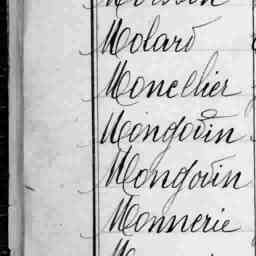 Molard
Moncellier
Mongouin
Mongouin
Monnerie